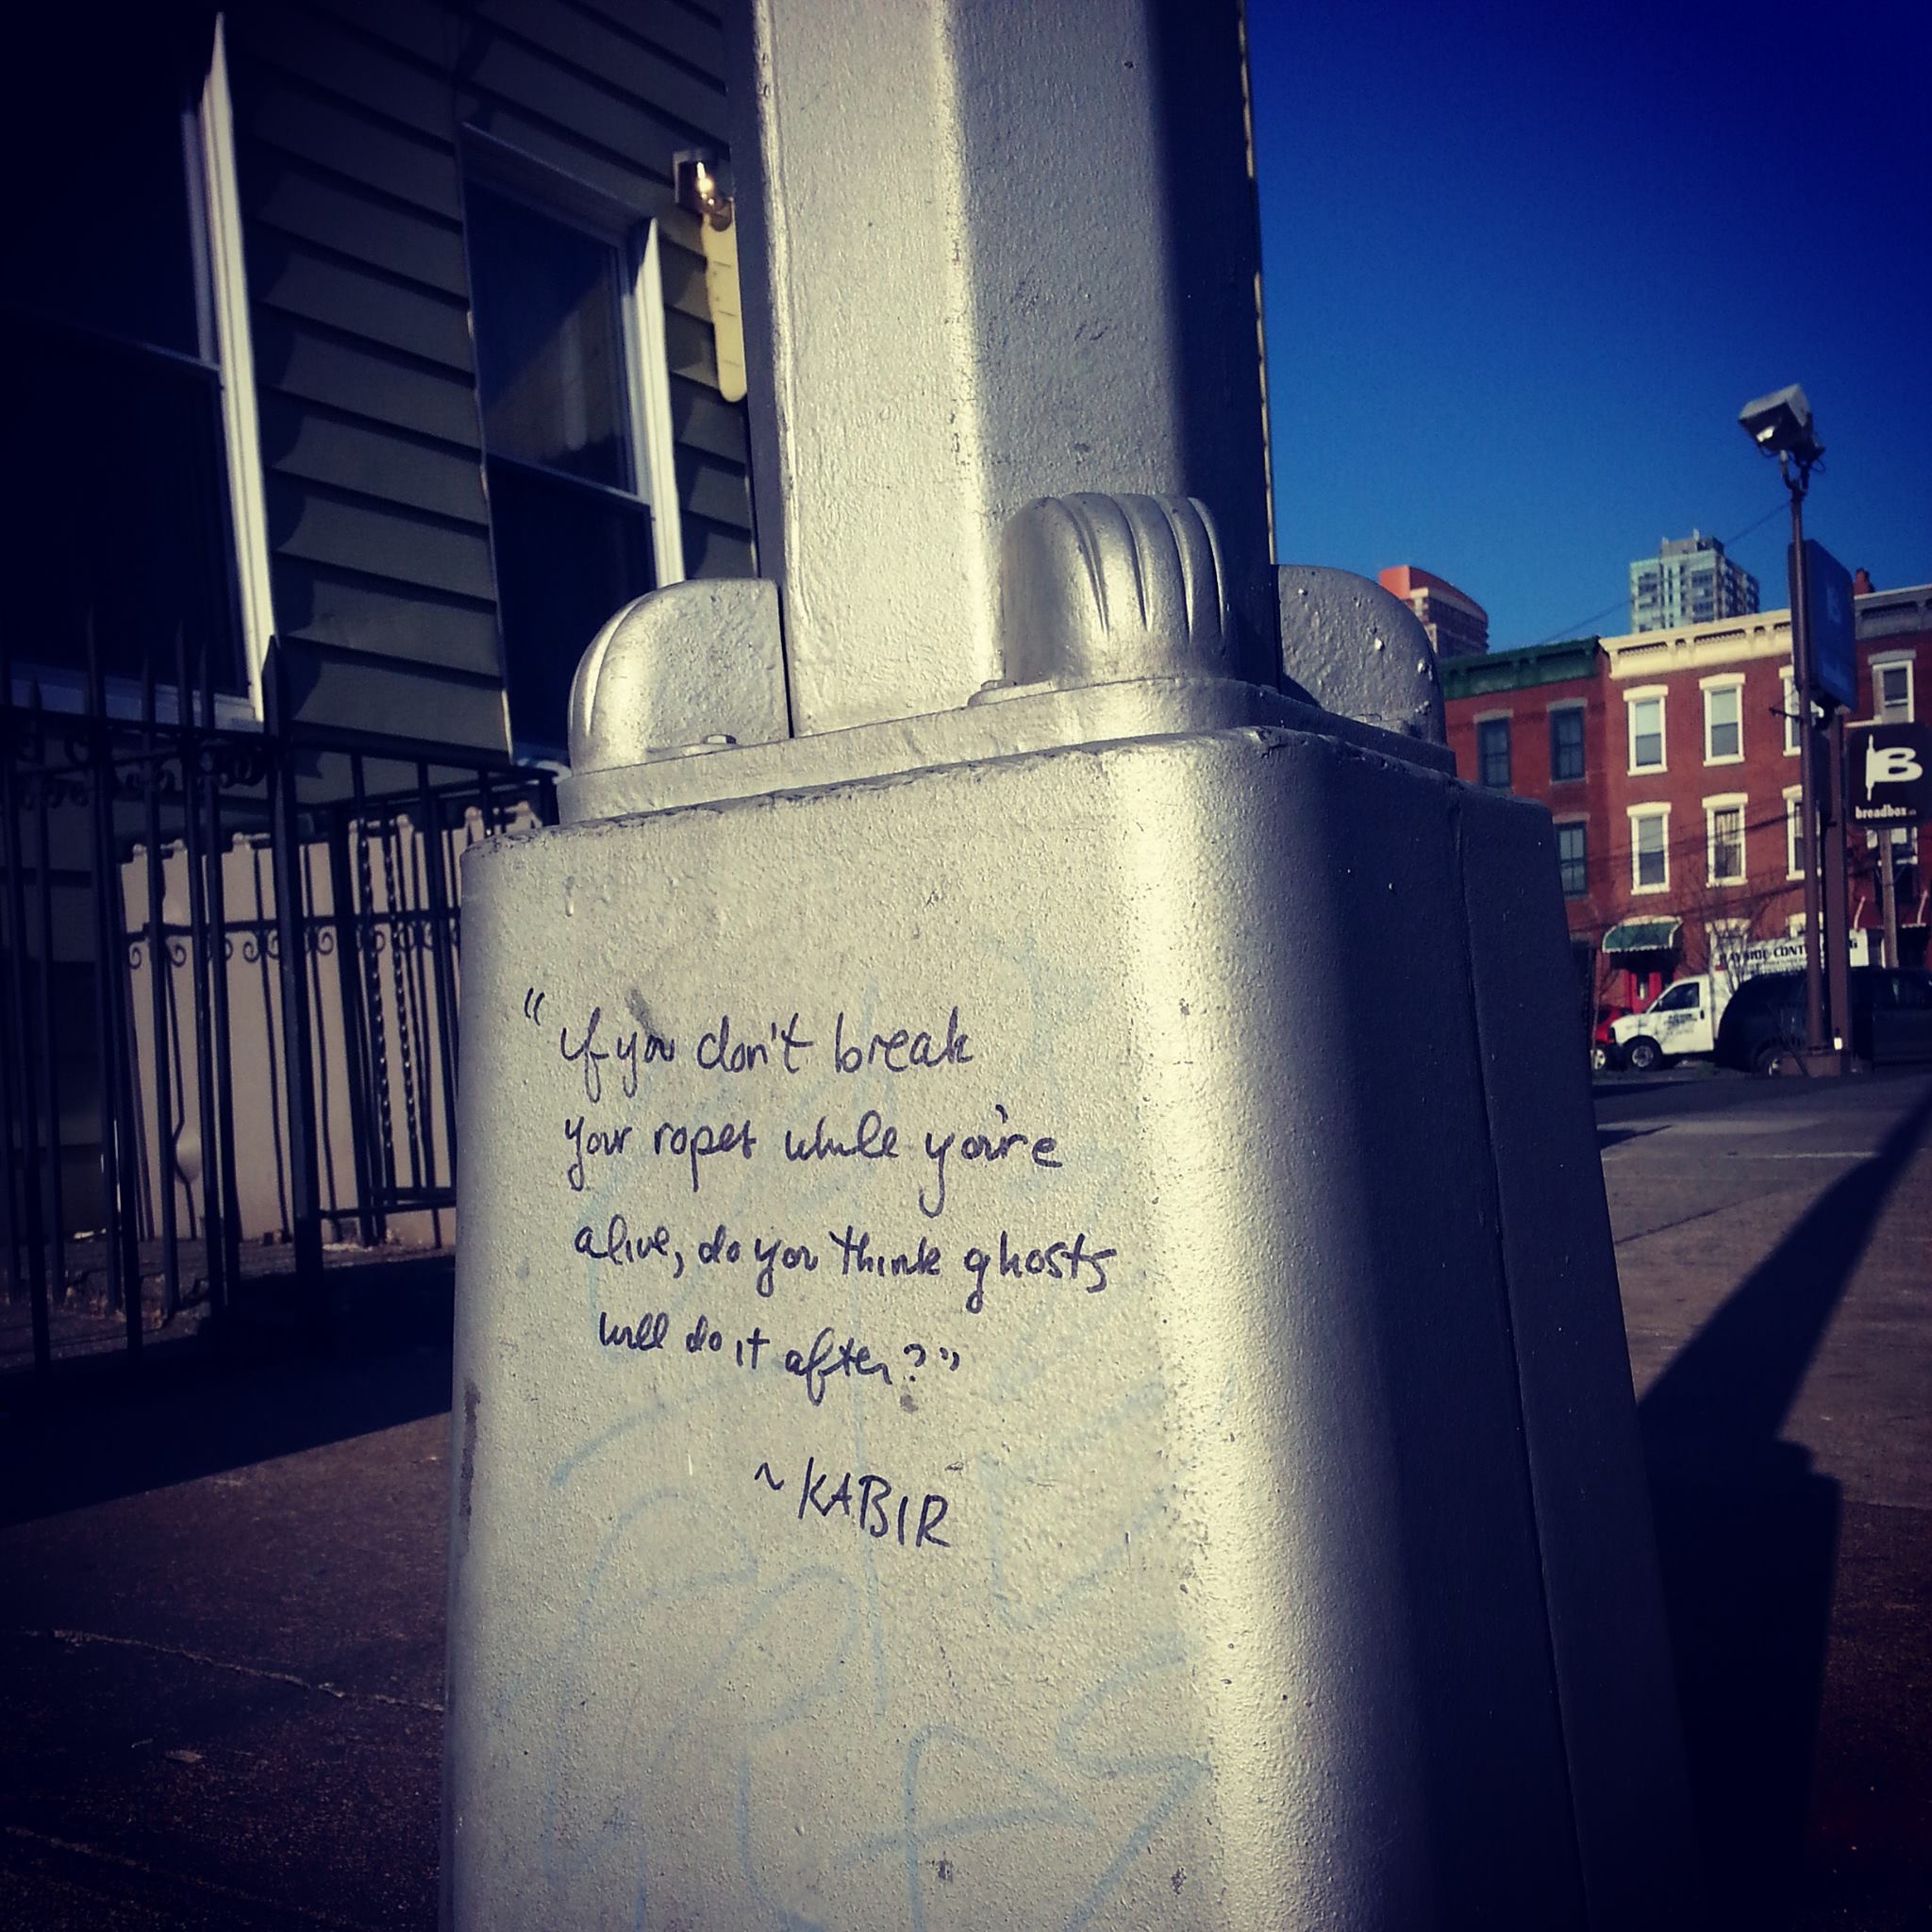 "if you don't break
your ropes while you're
alive, do you think ghosts
will do it after?"
~KABIR
B
breadbox